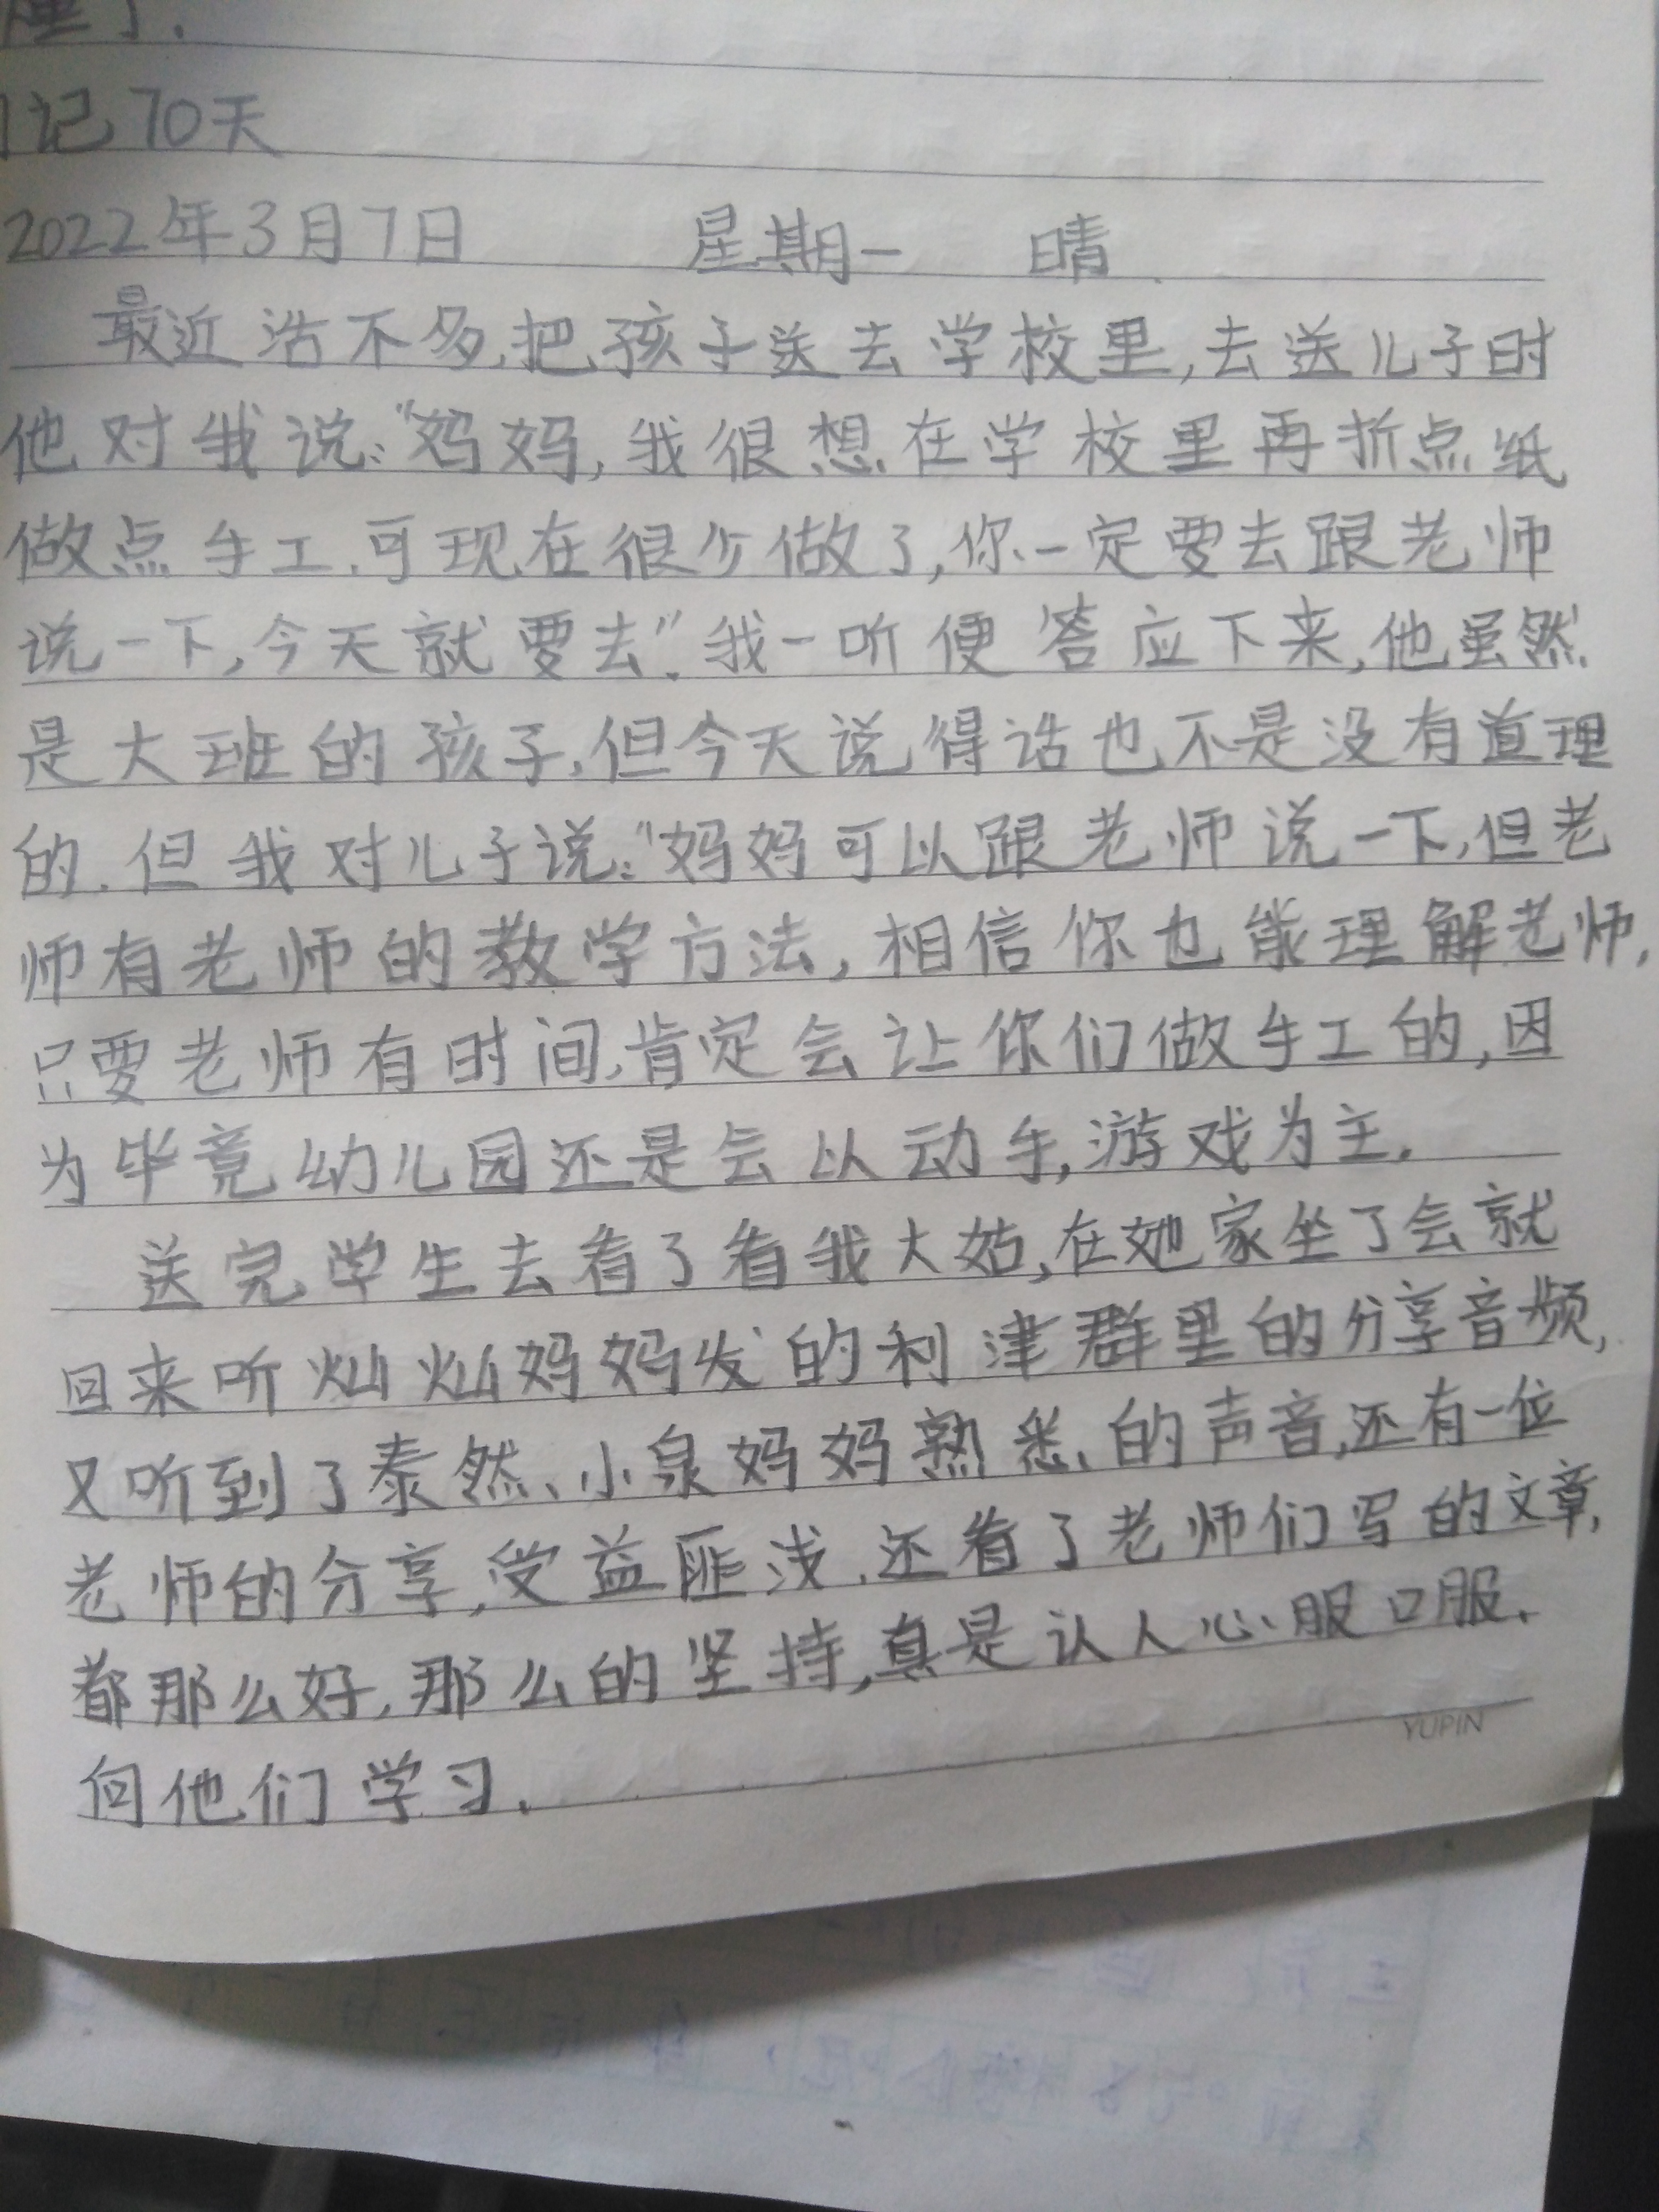 记70天
2022年3月7日 星期一 晴
最近活不多,把孩子送去学校里,去送儿子时
他对我说:"妈妈,我很想在学校里再折点纸
做点手工.可现在很少做了,你一定要去跟老师
说一下,今天就要去".我一听便答应下来,他虽然
是大班的孩子,但今天说得话也不是没有道理
的.但我对儿子说:"妈妈可以跟老师说一下,但老
师有老师的教学方法,相信你也能理解老师,
只要老师有时间,肯定会让你们做手工的,因
为毕竟幼儿园还是会以动手,游戏为主.
送完学生去看了看我大姑,在她家坐了会就
回来听灿灿妈妈发的利津群里的分享音频,
又听到了泰然、小泉妈妈熟悉的声音,还有一位
老师的分享,受益匪浅.还看了老师们写的文章,
都那么好,那么的坚持,真是认人心服口服.
向他们学习.
YUPIN